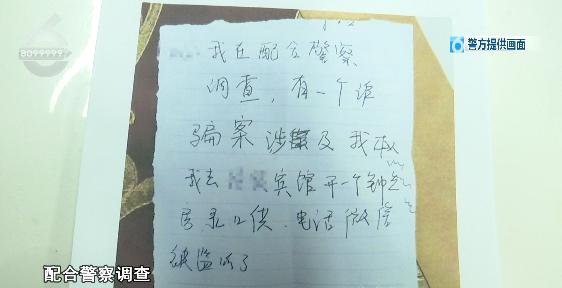 8099999
警方提供画面
我在配合警察
调查，有一个诈
骗案涉及我
我去 宾馆开一个钟点
房录口供、电话微信
被监听了
配合警察调查